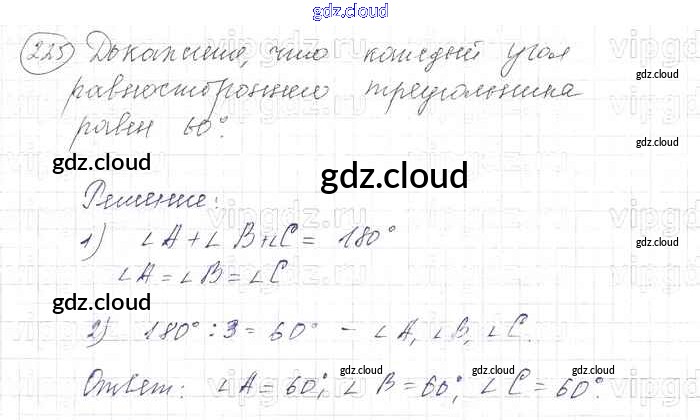 gdz.cloud
225 Докажите, что каждый угол
равностороннего треугольника
равен 60°.
gdz.cloud
gdz.cloud
gdz.cloud
gdz.cloud
Решение:
1) ∠A + ∠B + ∠C = 180°
gdz.cloud
∠A = ∠B = ∠C
gdz.cloud
2) 180° : 3 = 60° - ∠A, ∠B, ∠C.
gdz.cloud
gdz.cloud
gdz.cloud
Ответ: ∠A = 60°; ∠B = 60°; ∠C = 60°.
gdz.cloud